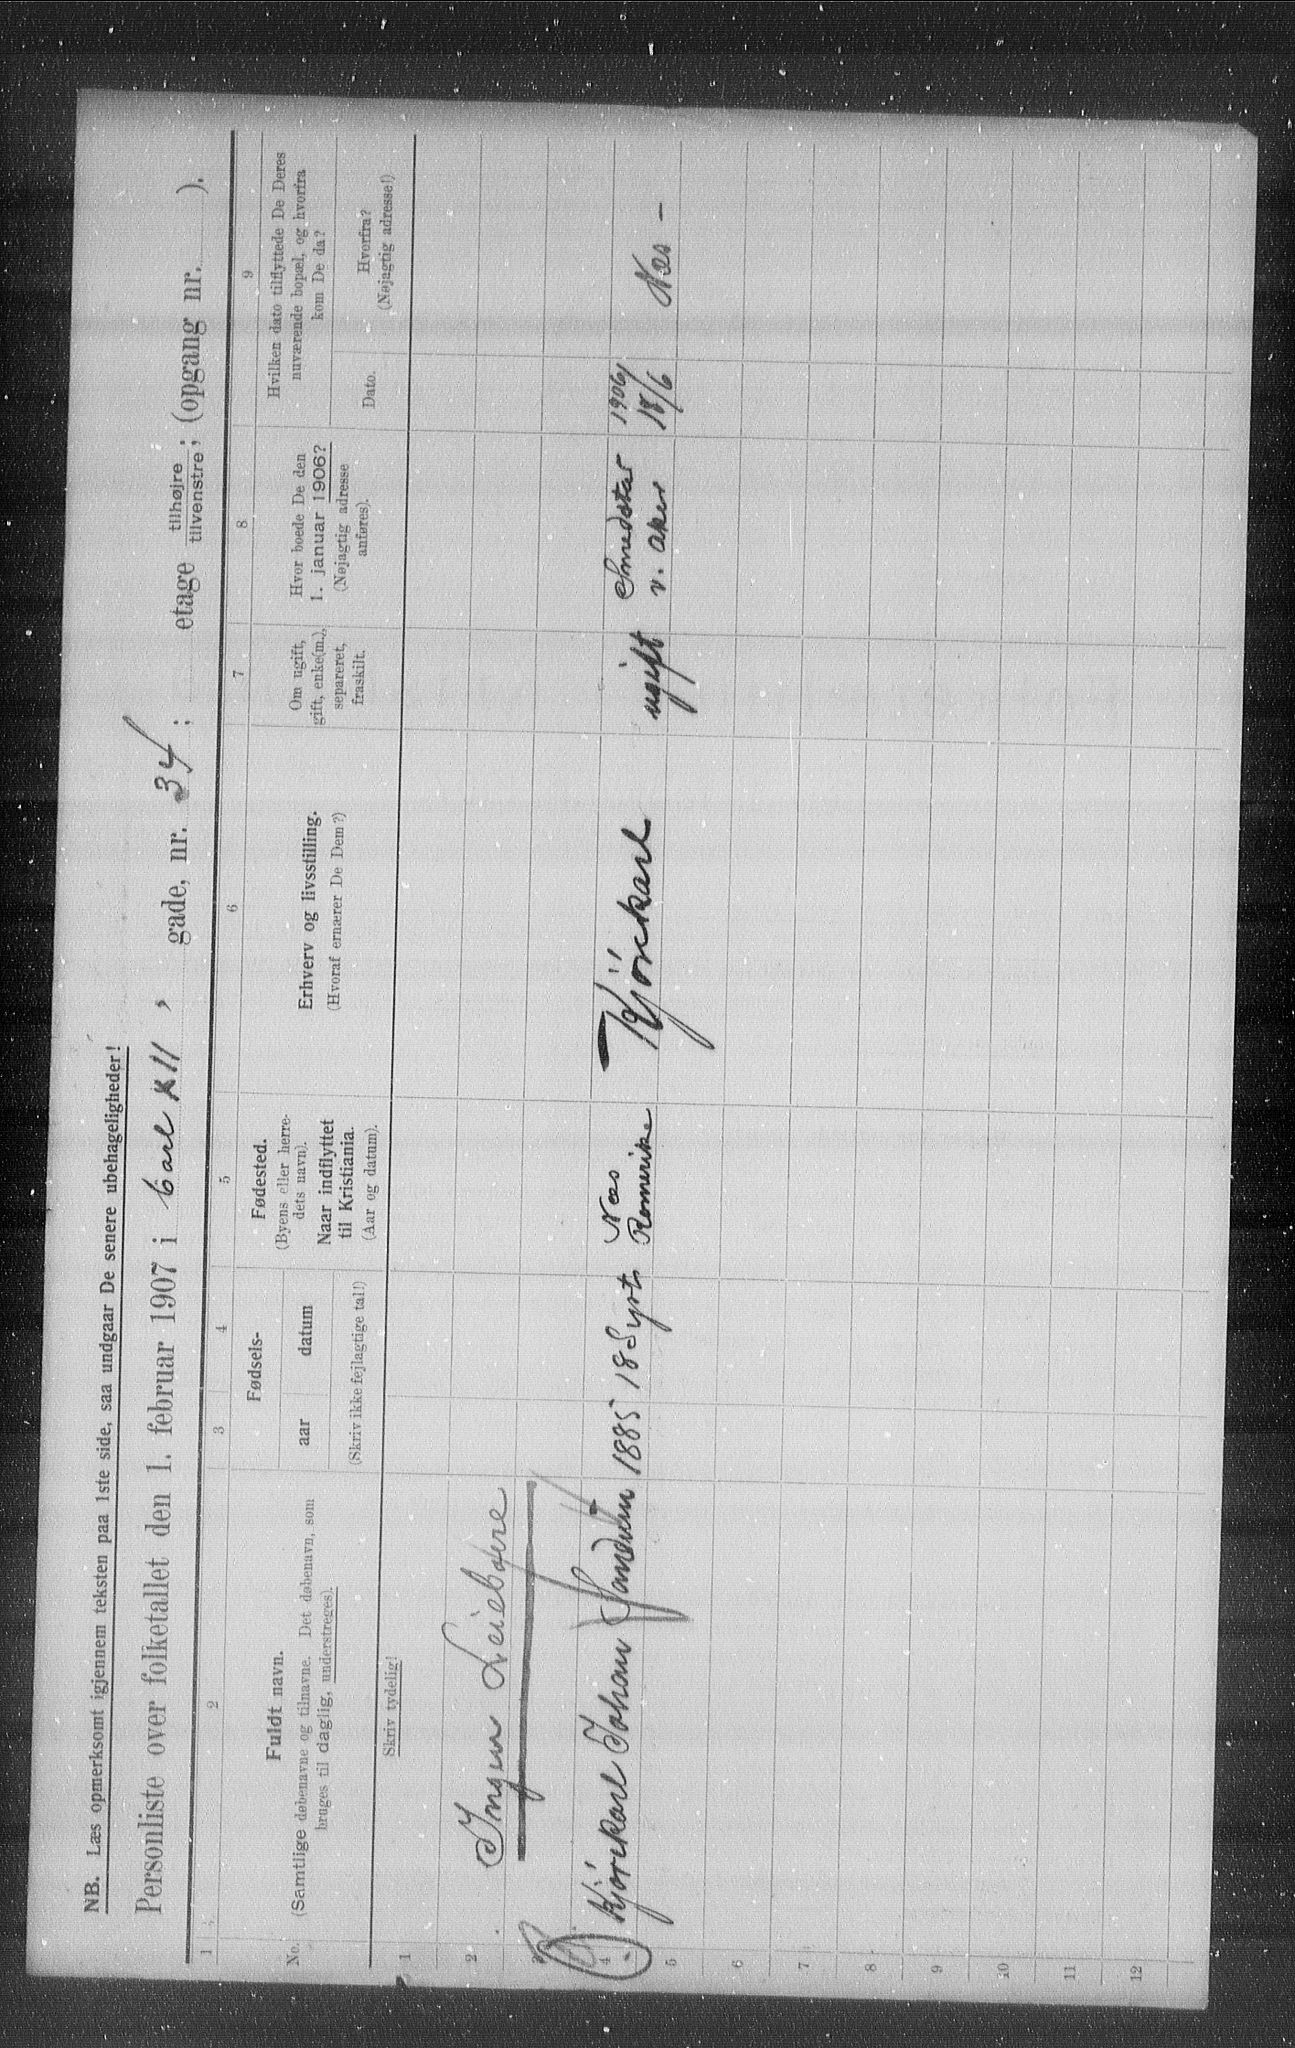 NB. Læs opmerksomt igjennem teksten paa 1ste side, saa undgaar De senere ubehageligheder!
Personliste over folketallet den 1. februar 1907 i Carl XII, gade, nr. 34; etage tilhøjre tilvenstre; (opgang nr. ).
1 2 3 4 5 6 7 8 9
No.
Fuldt navn.
(Samtlige døbenavne og tilnavne. Det døbenavn, som
bruges til daglig, understreges).
Skriv tydelig!
Fødsels-
aar datum
(Skriv ikke fejlagtige tal!)
Fødested.
(Byens eller herre-
dets navn).
Naar indflyttet
til Kristiania.
(Aar og datum).
Erhverv og livsstilling.
(Hvoraf ernærer De Dem?)
Om ugift,
gift, enke(m.),
separeret,
fraskilt.
Hvor boede De den
1. januar 1906?
(Nøjagtig adresse
anføres).
Hvilken dato tilflyttede De Deres
nuværende bopæl, og hvorfra
kom De da?
Dato.
Hvorfra?
(Nøjagtig adresse!)
1
2 Ingen Leieboere
3
4 Kjørekarl Johan 1885 18 Sept. Næs Romerike Kjørekarl ugift Smedstad v. Aker 1906 18/6 Næs -
5
6
7
8
9
10
11
12